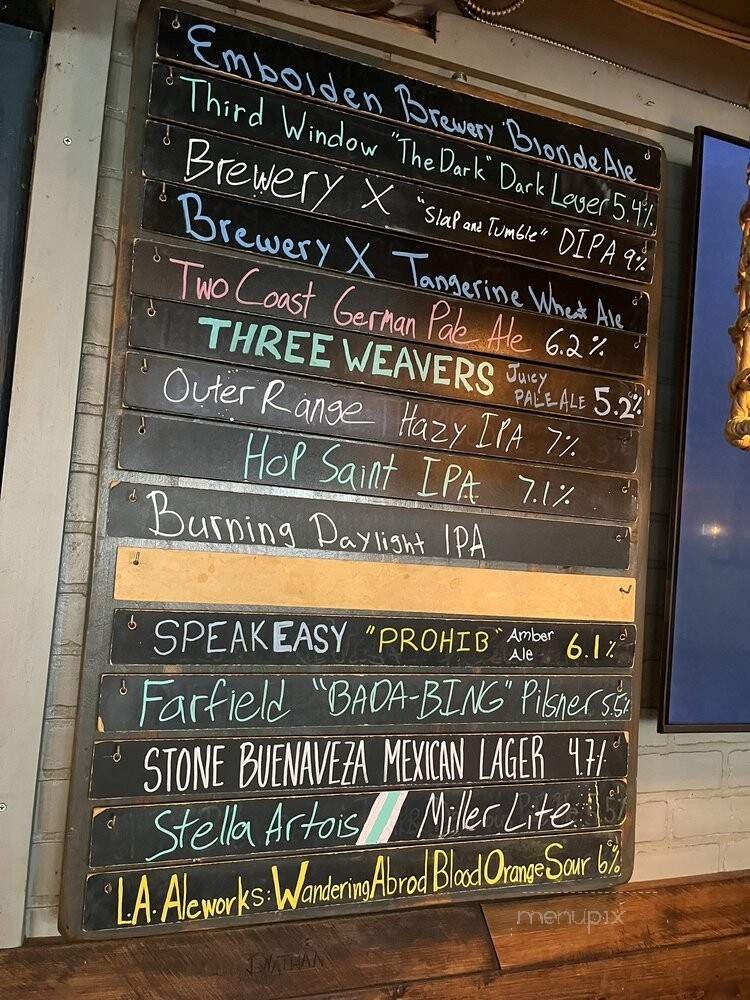 Embolden Brewery Blonde Ale
Third Window "The Dark" Dark Lager 5.4%
Brewery X "Slap and Tumble" DIPA 9%
Brewery X Tangerine Wheat Ale
Two Coast German Pale Ale 6.2%
THREE WEAVERS Juicy PALE ALE 5.2%
Outer Range Hazy IPA 7%
Hop Saint IPA 7.1%
Burning Daylight IPA
SPEAKEASY "PROHIB" Amber Ale 6.1%
Farfield "BADA-BING" Pilsner 5.5%
STONE BUENAVEZA MEXICAN LAGER 4.7%
Stella Artois // Miller Lite
L.A. Aleworks: Wandering Abrod Blood Orange Sour 6%
menupix